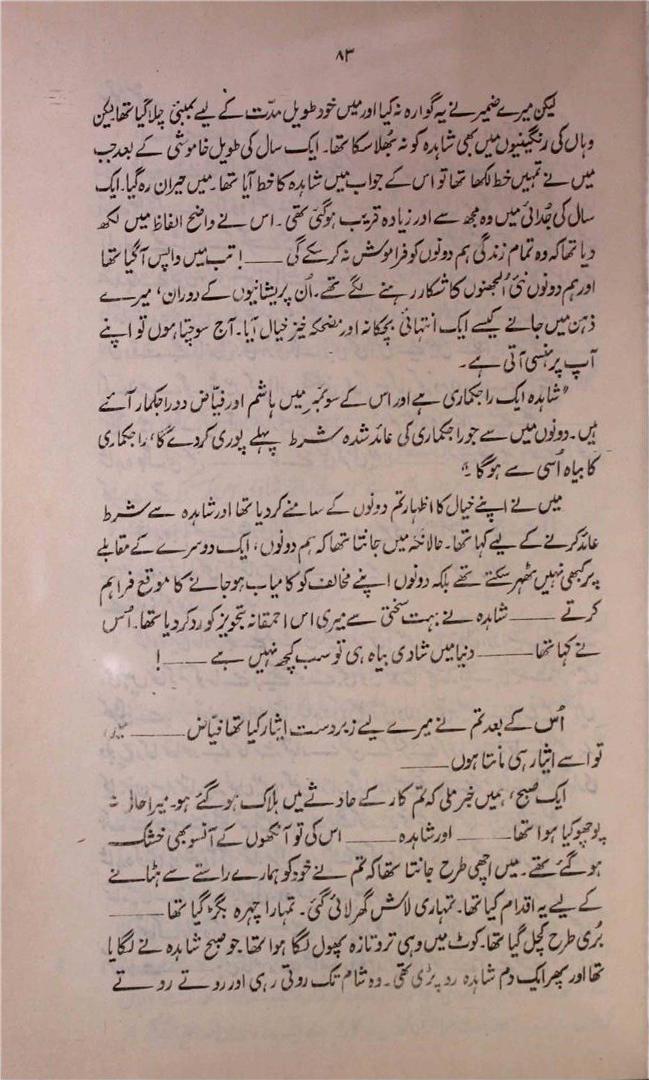 ۸۳
لیکن میرے ضمیر نے یہ گوارہ نہ کیا اور میں خود طویل مدّت کے لیے بمبئی چلا گیا تھا لیکن
وہاں کی رنگینیوں میں بھی شاہدہ کو نہ بھلا سکا تھا۔ ایک سال کی طویل خاموشی کے بعد جب
میں نے تمہیں خط لکھا تھا تو اس کے جواب میں شاہدہ کا خط آیا تھا۔ میں حیران رہ گیا۔ ایک
سال کی جُدائی میں وہ مجھ سے اور زیادہ قریب ہو گئی تھی۔ اس نے واضح الفاظ میں لکھ
دیا تھا کہ وہ تمام زندگی ہم دونوں کو فراموش نہ کر سکے گی ——! تب میں واپس آ گیا تھا
اور ہم دونوں نئی اُلجھنوں کا شکار رہنے لگے تھے۔ اُن پریشانیوں کے دوران، میرے
ذہن میں جانے کیسے ایک انتہائی بچکانہ اور مضحکہ خیز خیال آیا۔ آج سوچتا ہوں تو اپنے
آپ پر ہنسی آتی ہے۔
"شاہدہ ایک راجکماری ہے اور اس کے سوئمبر میں ہاشم اور فیّاض دو راجکمار آئے
ہیں۔ دونوں میں سے جو راجکماری کی عائد شدہ شرط پہلے پوری کر دے گا، راجکماری
کا بیاہ اُسی سے ہوگا۔"
میں نے اپنے خیال کا اظہار تم دونوں کے سامنے کر دیا تھا اور شاہدہ سے شرط
عائد کرنے کے لیے کہا تھا۔ حالانکہ میں جانتا تھا کہ ہم دونوں، ایک دوسرے کے مقابلے
پر کبھی نہیں ٹھہر سکتے تھے بلکہ دونوں اپنے مخالف کو کامیاب ہو جانے کا موقع فراہم
کرتے —— شاہدہ نے بہت سختی سے میری اس احمقانہ تجویز کو رد کر دیا تھا۔ اُس
نے کہا تھا —— دنیا میں شادی بیاہ ہی تو سب کچھ نہیں ہے ——!
اُس کے بعد تم نے میرے لیے زبردست ایثار کیا تھا فیّاض ——
تو اسے ایثار ہی مانتا ہوں ——
ایک صبح، ہمیں خبر ملی کہ تم کار کے حادثے میں ہلاک ہو گئے ہو۔ میرا حال نہ
پوچھو کیا ہوا تھا —— اور شاہدہ —— اس کی تو آنکھوں کے آنسو بھی خشک
ہو گئے تھے۔ میں اچھی طرح جانتا تھا کہ تم نے خود کو ہمارے راستے سے ہٹانے
کے لیے یہ اقدام کیا تھا۔ تمہاری لاش گھر لائی گئی۔ تمہارا چہرہ بگڑ گیا تھا ——
بُری طرح کچل گیا تھا۔ کوٹ میں وہی تروتازہ پھول لگا ہوا تھا جو صبح شاہدہ نے لگایا
تھا اور پھر ایک دم شاہدہ رو پڑی تھی۔ وہ شام تک روتی رہی اور روتے روتے